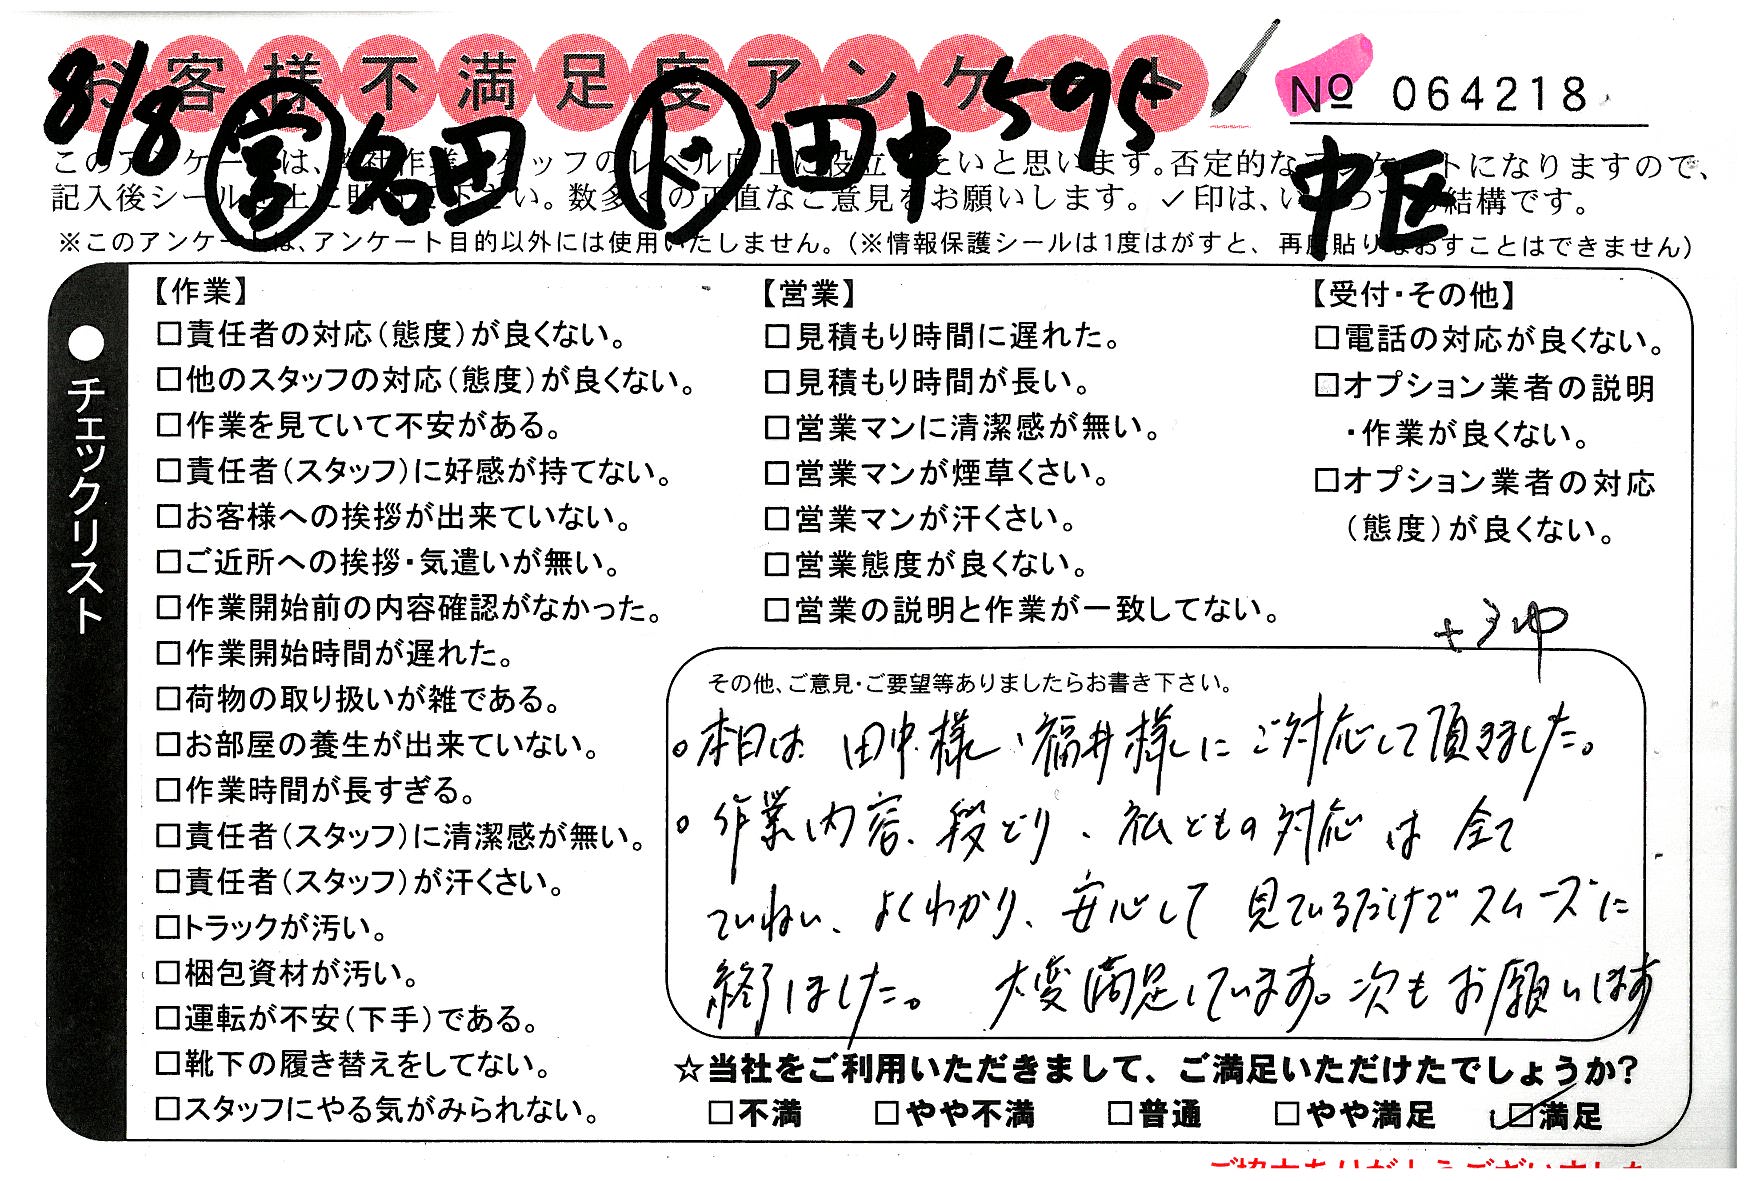 お客様不満足度アンケート
№ 064218
8/8 営 名田 ド 田中 595
中区
このアンケートは、弊社作業スタッフのレベル向上に役立てたいと思います。否定的なアンケートになりますので、
記入後シールを上に貼って下さい。数多くの正直なご意見をお願いします。✓印は、いくつでも結構です。
※このアンケートは、アンケート目的以外には使用いたしません。(※情報保護シールは1度はがすと、再度貼りなおすことはできません)
●チェックリスト
【作業】
□責任者の対応(態度)が良くない。
□他のスタッフの対応(態度)が良くない。
□作業を見ていて不安がある。
□責任者(スタッフ)に好感が持てない。
□お客様への挨拶が出来ていない。
□ご近所への挨拶・気遣いが無い。
□作業開始前の内容確認がなかった。
□作業開始時間が遅れた。
□荷物の取り扱いが雑である。
□お部屋の養生が出来ていない。
□作業時間が長すぎる。
□責任者(スタッフ)に清潔感が無い。
□責任者(スタッフ)が汗くさい。
□トラックが汚い。
□梱包資材が汚い。
□運転が不安(下手)である。
□靴下の履き替えをしてない。
□スタッフにやる気がみられない。
【営業】
□見積もり時間に遅れた。
□見積もり時間が長い。
□営業マンに清潔感が無い。
□営業マンが煙草くさい。
□営業マンが汗くさい。
□営業態度が良くない。
□営業の説明と作業が一致してない。
【受付・その他】
□電話の対応が良くない。
□オプション業者の説明
・作業が良くない。
□オプション業者の対応
(態度)が良くない。
その他、ご意見・ご要望等ありましたらお書き下さい。
。本日は 田中様、福井様に ご対応して頂きました。
。作業内容、段どり、私どもの対応 は 全て
ていねい、よくわかり、安心して 見ているだけでスムーズに
終了しました。 大変満足しています。次もお願いします
☆当社をご利用いただきまして、ご満足いただけたでしょうか?
□不満 □やや不満 □普通 □やや満足 ☑満足
ご協力ありがとうございました